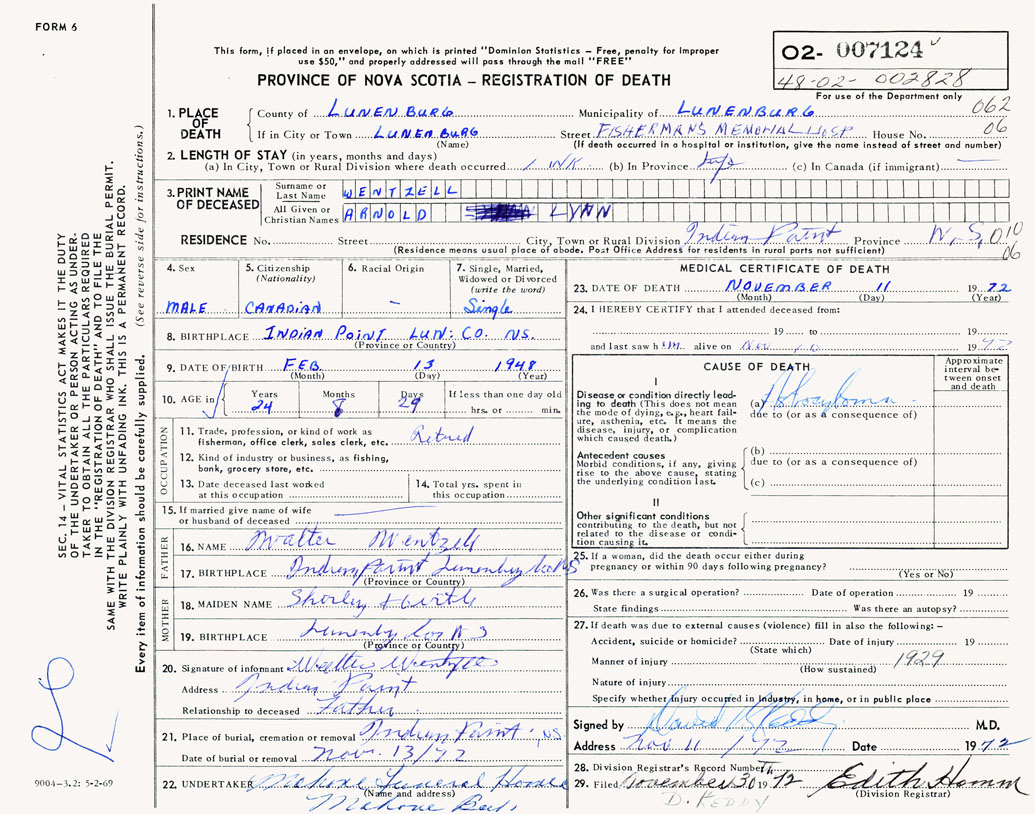 FORM 6
This form, if placed in an envelope, on which is printed "Dominion Statistics — Free, penalty for improper
use $50," and properly addressed will pass through the mail "FREE"
PROVINCE OF NOVA SCOTIA — REGISTRATION OF DEATH
O2- 007124
48-02- 002828
For use of the Department only
062
06
1. PLACE OF DEATH
County of LUNENBURG Municipality of LUNENBURG
If in City or Town LUNENBURG Street FISHERMANS MEMORIAL HOSP House No.
(Name) (If death occurred in a hospital or institution, give the name instead of street and number)
2. LENGTH OF STAY (in years, months and days)
(a) In City, Town or Rural Division where death occurred (b) In Province (c) In Canada (if immigrant)
3. PRINT NAME OF DECEASED
Surname or Last Name WENTZELL
All Given or Christian Names ARNOLD LYNN
RESIDENCE No. Street City, Town or Rural Division Indian Point Province N.S. 010
06
(Residence means usual place of abode. Post Office Address for residents in rural parts not sufficient)
4. Sex
MALE
5. Citizenship
(Nationality)
CANADIAN
6. Racial Origin
–
7. Single, Married,
Widowed or Divorced
(write the word)
Single
8. BIRTHPLACE INDIAN POINT LUN: CO. NS.
(Province or Country)
9. DATE OF BIRTH FEB. 13 1948
(Month) (Day) (Year)
10. AGE in Years Months Days If less than one day old
24 8 29 hrs. or min.
OCCUPATION
11. Trade, profession, or kind of work as
fisherman, office clerk, sales clerk, etc. Retired
12. Kind of industry or business, as fishing,
bank, grocery store, etc.
13. Date deceased last worked
at this occupation
14. Total yrs. spent in
this occupation
15. If married give name of wife
or husband of deceased
FATHER
16. NAME Walter Wentzell
17. BIRTHPLACE Indian Point Lunenburg Co NS
(Province or Country)
MOTHER
18. MAIDEN NAME Shirley
19. BIRTHPLACE Lunenburg Co N S
(Province or Country)
20. Signature of informant Walter Wentzell
Address Indian Point
Relationship to deceased Father
21. Place of burial, cremation or removal Indian Point, NS
Date of burial or removal Nov. 13/72
22. UNDERTAKER Mahone Funeral Home
(Name and address)
Mahone Bay
MEDICAL CERTIFICATE OF DEATH
23. DATE OF DEATH NOVEMBER 11 1972
(Month) (Day) (Year)
24. I HEREBY CERTIFY that I attended deceased from:
19 to 19
and last saw him alive on Nov 10 1972
CAUSE OF DEATH
Approximate
interval be-
tween onset
and death
I
Disease or condition directly lead-
ing to death (This does not mean
the mode of dying, e.g., heart fail-
ure, asthenia, etc. It means the
disease, injury, or complication
which caused death.)
(a)
due to (or as a consequence of)
Antecedent causes
Morbid conditions, if any, giving
rise to the above cause, stating
the underlying condition last.
(b)
due to (or as a consequence of)
(c)
II
Other significant conditions
contributing to the death, but not
related to the disease or condi-
tion causing it.
25. If a woman, did the death occur either during
pregnancy or within 90 days following pregnancy?
(Yes or No)
26. Was there a surgical operation? Date of operation 19
State findings Was there an autopsy?
27. If death was due to external causes (violence) fill in also the following: —
Accident, suicide or homicide? Date of injury 19
(State which)
Manner of injury 1929
(How sustained)
Nature of injury
Specify whether injury occurred in industry, in home, or in public place
Signed by M.D.
Address Nov 11 /72 Date 1972
28. Division Registrar's Record Number
29. Filed November 30 1972 Edith Hamm
(Division Registrar)
D. KEDDY
SEC. 14 — VITAL STATISTICS ACT MAKES IT THE DUTY
OF THE UNDERTAKER OR PERSON ACTING AS UNDER-
TAKER TO OBTAIN ALL THE PARTICULARS REQUIRED
IN THE "REGISTRATION OF DEATH" AND TO FILE THE
SAME WITH THE DIVISION REGISTRAR WHO SHALL ISSUE THE BURIAL PERMIT.
WRITE PLAINLY WITH UNFADING INK. THIS IS A PERMANENT RECORD.
Every item of information should be carefully supplied. (See reverse side for instructions.)
9004-3.2: 5-2-69